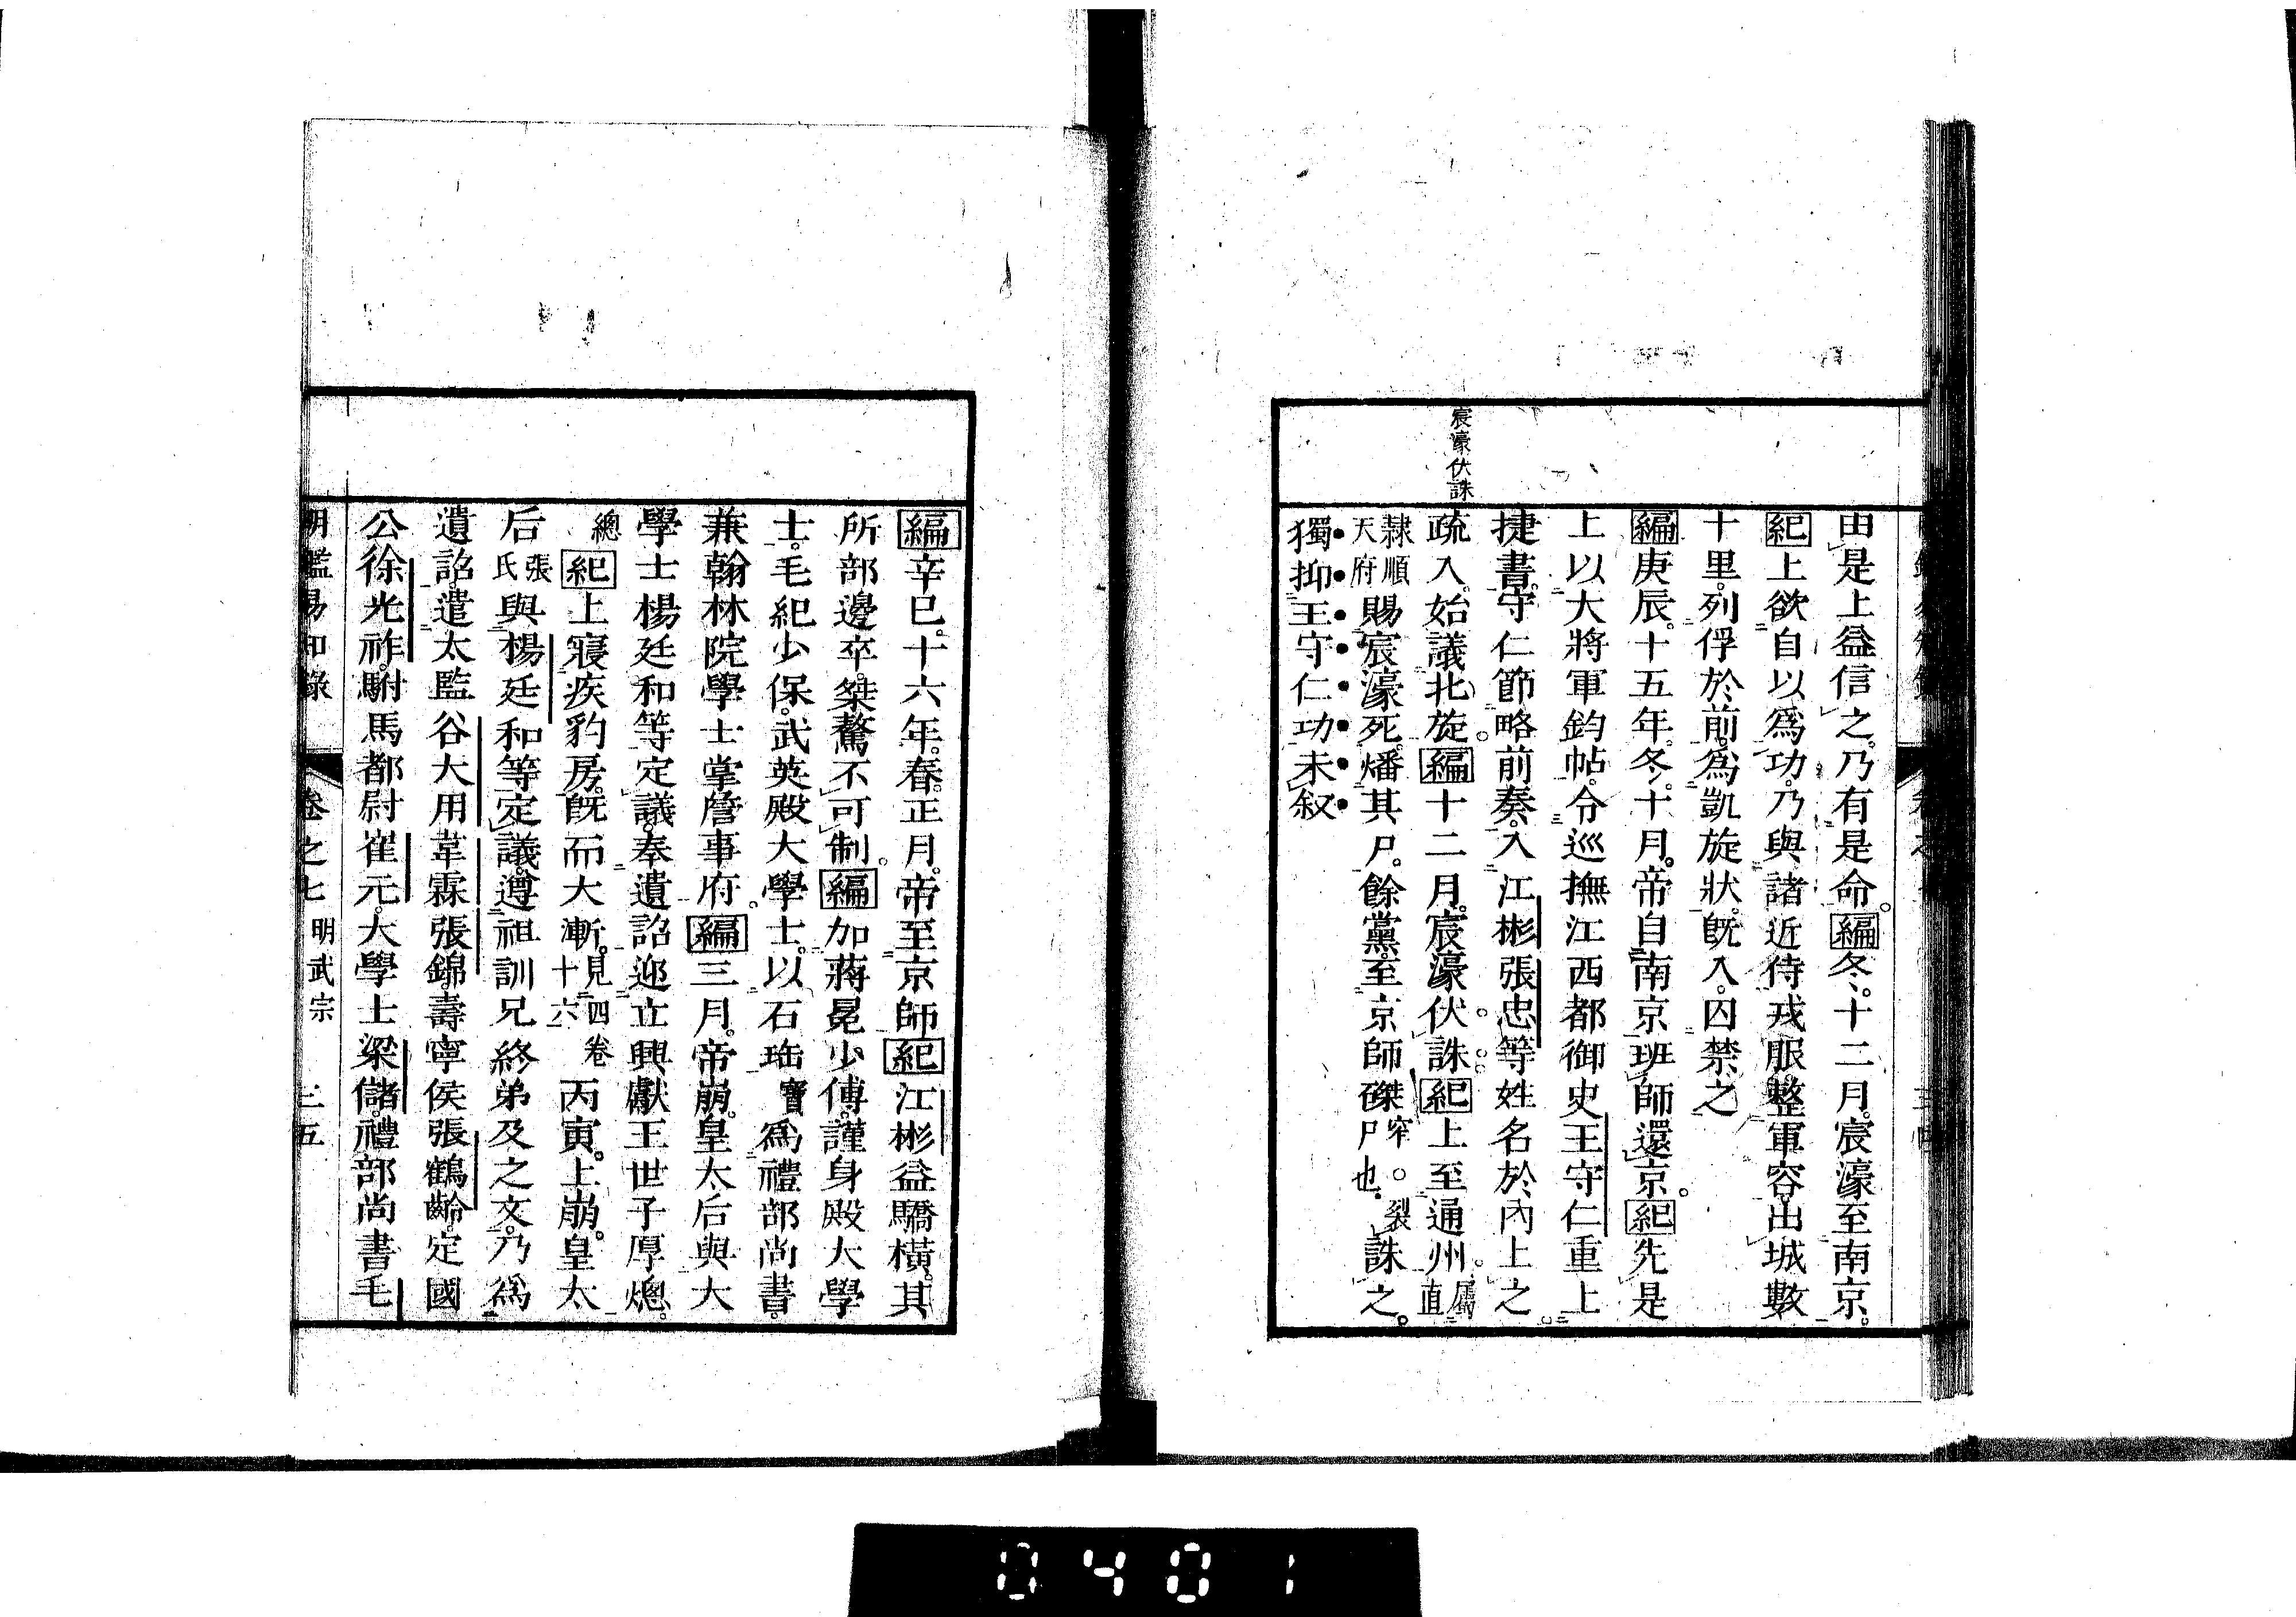 宸濠伏誅
由是上益信之。乃有是命。編冬。十二月。宸濠至南京。
紀上欲自以爲功。乃與諸近侍戎服。整軍容。出城數
十里。列俘於前。爲凱旋狀。既入。囚禁之
編庚辰。十五年。冬。十月。帝自南京班師還京。紀先是
上以大將軍鈞帖。令巡撫江西都御史王守仁重上
捷書。守仁節略前奏。入江彬張忠等姓名於內上之
疏入。始議北旋。編十二月。宸濠伏誅紀上至通州。屬直
隸順天府賜宸濠死。燔其尸。餘黨至京師磔桀窄。裂尸也誅之。
獨抑王守仁功未叙
編辛巳。十六年。春。正月。帝至京師紀江彬益驕橫。其
所部邊卒。桀驁不可制。編加蔣冕少傅。謹身殿大學
士。毛紀少保。武英殿大學士。以石珤寶爲禮部尚書。
兼翰林院學士掌詹事府。編三月。帝崩。皇太后與大
學士楊廷和等定議。奉遺詔迎立興獻王世子厚熜。
總紀上寢疾豹房。既而大漸。見四十六卷丙寅。上崩。皇太
后張氏與楊廷和等定議。遵祖訓兄終弟及之文。乃爲
遺詔。遣太監谷大用韋霦張錦。壽寧侯張鶴齡。定國
公徐光祚。駙馬都尉崔元。大學士梁儲。禮部尚書毛
明鑑易知錄 卷之七 明武宗 三五
0401